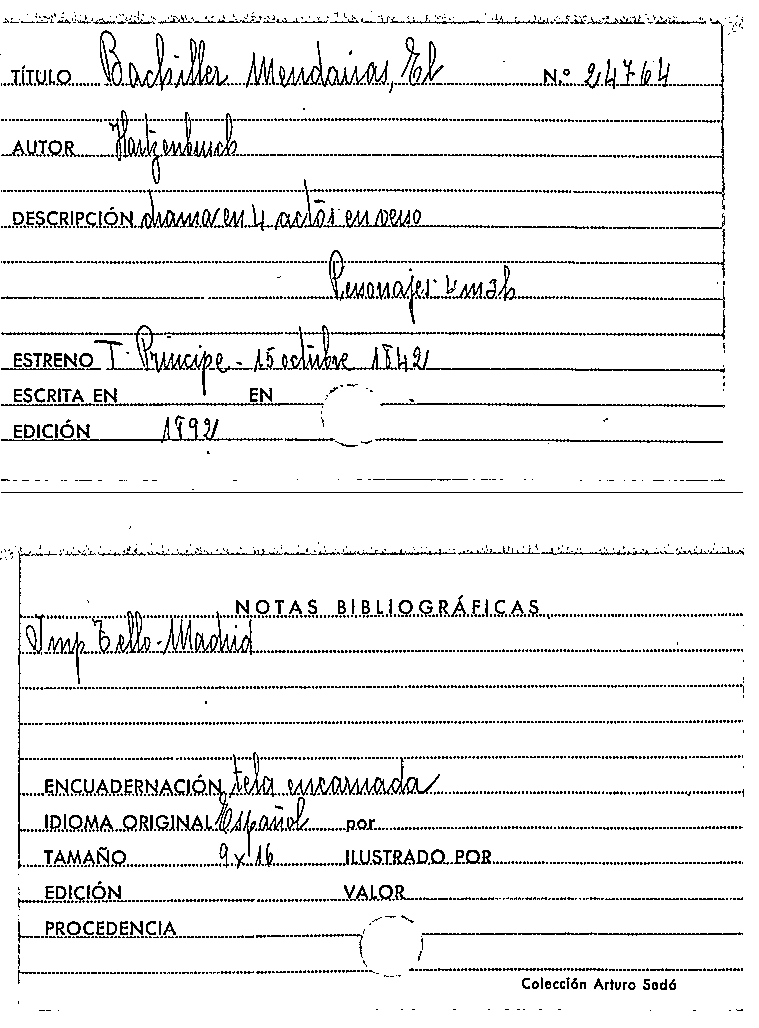 TÍTULO Bachiller Mendarias, El N.º 24764
AUTOR Hartzenbusch
DESCRIPCIÓN drama en 4 actos en verso
Personajes 4 m 3 h
ESTRENO T. Príncipe - 15 octubre 1842
ESCRITA EN EN
EDICIÓN 1892
NOTAS BIBLIOGRÁFICAS
Imp Tello - Madrid
ENCUADERNACIÓN tela encarnada
IDIOMA ORIGINAL Español por
TAMAÑO 9 x 16 ILUSTRADO POR
EDICIÓN VALOR
PROCEDENCIA
Colección Arturo Sedó